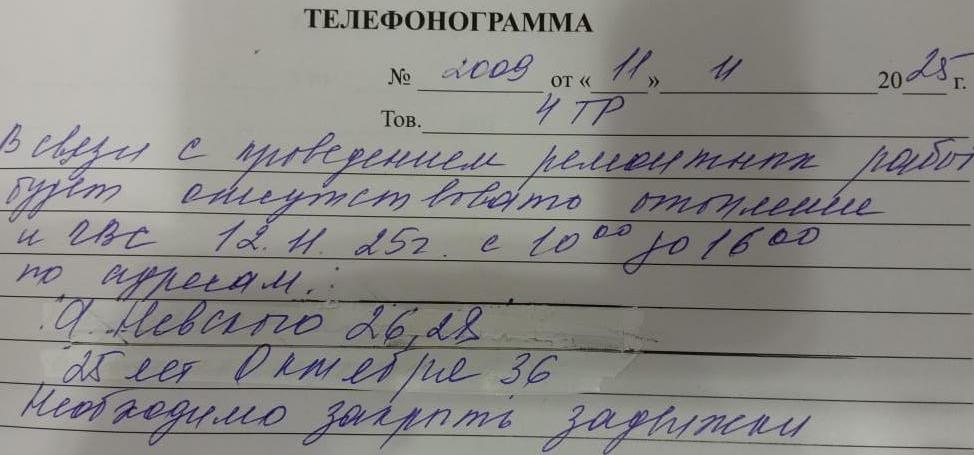 ТЕЛЕФОНОГРАММА
№ 2009 от « 11 » 11 2025 г.
Тов. 4 ТР
В связи с проведением ремонтных работ
будет отсутствовать отопление
и ГВС 12.11.25г. с 10⁰⁰ до 16⁰⁰
по адресам:
А. Невского 26, 28
25 лет Октября 36
Необходимо закрыть задвижки